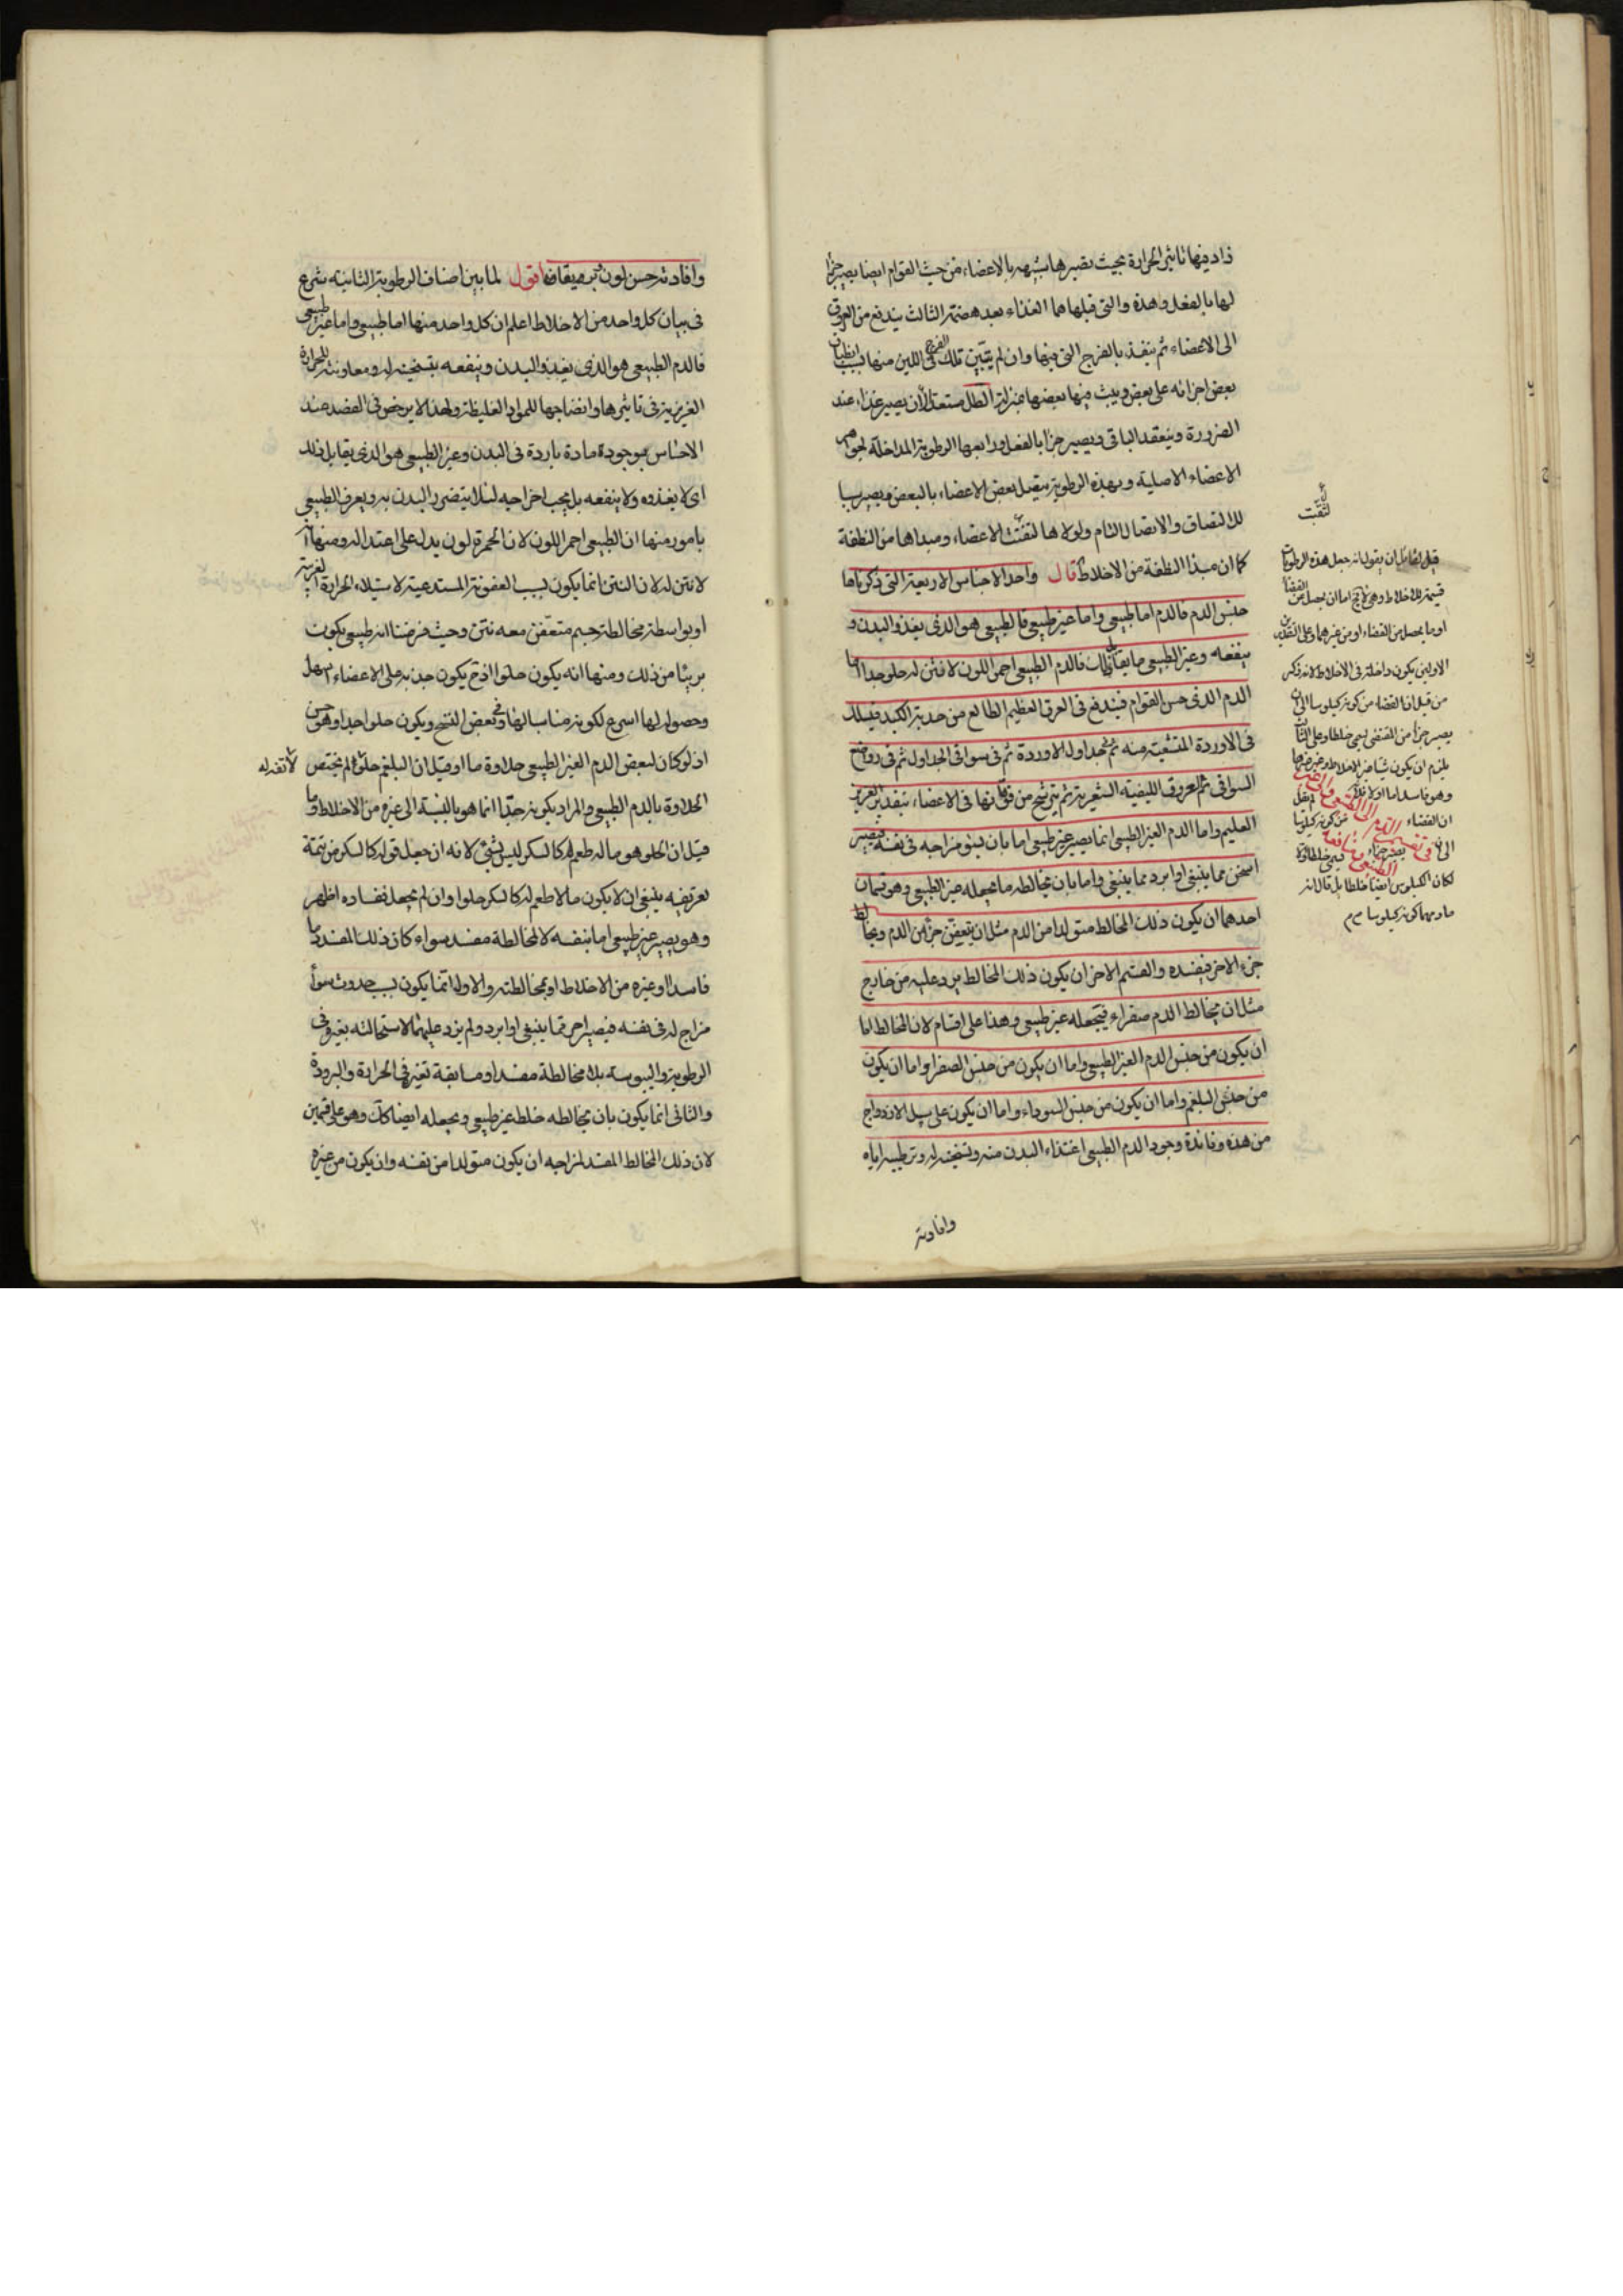 زاد فيها تاثير الحرارة بحيث تصيرها شبيهة بالاعضاء من حيث القوام ايضا يصير جزأ
لها بالفعل وهذه والتى قبلها هما الغذاء بعد هضمه الثالث يندفع من العروق
الى الاعضاء ثم ينفذ بالفرج التى فيها وان لم يتبين تلك الفرج فى اللين منها بسبب انطباق
بعض اجزائه على بعض ويبث فيها بعضها بمنزلة الطل مستعدا لأن يصير غذاء عند
الضرورة وينعقد الباقى ويصير جزأ بالفعل ورابعها الرطوبة المداخلة لجوهر
الاعضاء الاصلية وبهذه الرطوبة يتصل بعض الاعضاء بالبعض ويصير سببا
للالتصاق والاتصال التام ولولاها لتفتت الاعضاء ومبداها من النطفة
كما ان مبدأ النطفة من الاخلاط قال واحد الاجناس الاربعة التى ذكرناها
جنس الدم فالدم اما طبيعى واما غير طبيعى فالطبيعى هو الذى يغذو البدن و
ينفعه وغير الطبيعى ما يقابل ذلك فالدم الطبيعى احمر اللون لا نتن له حلو جدا اما
الدم الذى حسن القوام فيندفع فى العرق العظيم الطالع من حدبة الكبد فيسلك
فى الاوردة المتشعبة منه ثم فى جداول الاوردة ثم فى سواقى الجداول ثم فى رواضع
السواقى ثم العروق الليفية الشعرية ثم يترشح من فوهاتها فى الاعضاء بتقدير العزيز
العليم واما الدم الغير الطبيعى انما يصير غير طبيعى اما بان يسؤ مزاجه فى نفسه فيصير
اسخن مما ينبغى او ابرد مما ينبغى واما بان يخالطه ما يجعله غير الطبيعى وهو قسمان
احدهما ان يكون ذلك المخالط متولدا من الدم مثل ان يتعفن جزء من الدم ويخالط
جزء الاخر فيفسده والقسم الاخر ان يكون ذلك المخالط يرد عليه من خارج
مثل ان يخالط الدم صفراء فيجعله غير طبيعى وهذا على اقسام لان المخالط اما
ان يكون من جنس الدم الغير الطبيعى واما ان يكون من جنس الصفرا واما ان يكون
من جنس البلغم واما ان يكون من جنس السوداء واما ان يكون على سبيل الازدواج
من هذه وفائدة وجود الدم الطبيعى اغتذاء البدن منه وتسخينه له وترطيبه اياه
وافادته
لتفتت
قيل لقائل ان يقول انه جعل هذه الرطوبات
قسيمة للاخلاط وهى لا يخ اما ان يحصل من الفضأ
او ما يحصل من الفضاء او من غيرهما وعلى التقديرين
الاولين يكون داخلة فى الاخلاط لانه ذكر
من قبل ان الفضاء من كونه كيلوسا الى ان
يصير جزأ من المغتذى يسمى خلطا وعلى الثالث
يلزم ان يكون شيأ من الاخلاط وغيرها
لكان الكيلوس ايضا خلطا بل قال انه
مادمهما كونه كيلوسا م م
وافادته حسن لون بشرته يقافه اقول لما بين اصناف الرطوبة الثانية شرع
فى بيان كل واحد من الاخلاط اعلم ان كل واحد منها اما طبيعى واما غير طبيعى
فالدم الطبيعى هو الذى يغذو البدن وينفعه بتسخينه له ومعاونته للحرارة
الغريزية فى تاثيرها وانضاجها للمواد الغليظة ولهذا لا يرخص فى الفصد عند
الاحساس بموجودة مادة باردة فى البدن وغير الطبيعى هو الذى يقابل ذلك
اى لا يغذوه ولا ينفعه بل يجب اخراجه لئلا يتضرر البدن به ويعرف الطبيعى
بامور منها ان الطبيعى احمر اللون لان الحمرة لون يدل على اعتداله ومنها انه
لا نتن له لان النتن انما يكون بسبب العفونة المستدعية لاستيلاء الحرارة الغريبة
او بواسطة مخالطة جسم متعفن معه نتن وحيث فرضنا انه طبيعى يكون
بريئا من ذلك ومنها انه يكون حلوا اذ ح يكون جذبه على الاعضاء اسهل
وحصوله لها اسرع لكونه مناسبا لها وفى بعض النسخ ويكون حلوا جدا وهو حسن
اذ لو كان لبعض الدم الغير الطبيعى حلاوة ما او قيل ان البلغم حلو لم يختص
لاتفدله
الحلاوة بالدم الطبيعى والمراد بكونه جدا انما هو بالنسبة الى غيره من الاخلاط وما
قيل ان الحلو هو ما له طعم كالسكر ليس بشئ لانه ان جعل قوله كالسكر من تتمة
تعريفه ينبغى ان لا يكون ما لا طعم له كالسكر حلوا وان لم يجعل ففساده اظهر
وهو يصير غير طبيعى اما بنفسه لا لمخالطة مفسد سواء كان ذلك المفسد دما
فاسدا او غيره من الاخلاط او بمخالطته والاول انما يكون بسبب حدوث سوأ
مزاج له فى نفسه فيصير احر مما ينبغى او ابرد ولم يزد عليهما لاستحالته بغيره فى
الرطوبة واليبوسة بلا مخالطة مفسد او مسابقة تغير فى الحرارة والبرودة
والثانى انما يكون بان يخالطه خلط غير طبيعى ويجعله ايضا كذلك وهو على قسمين
لان ذلك المخالط المفسد لمزاجه ان يكون متولدا من نفسه وان يكون من غيره